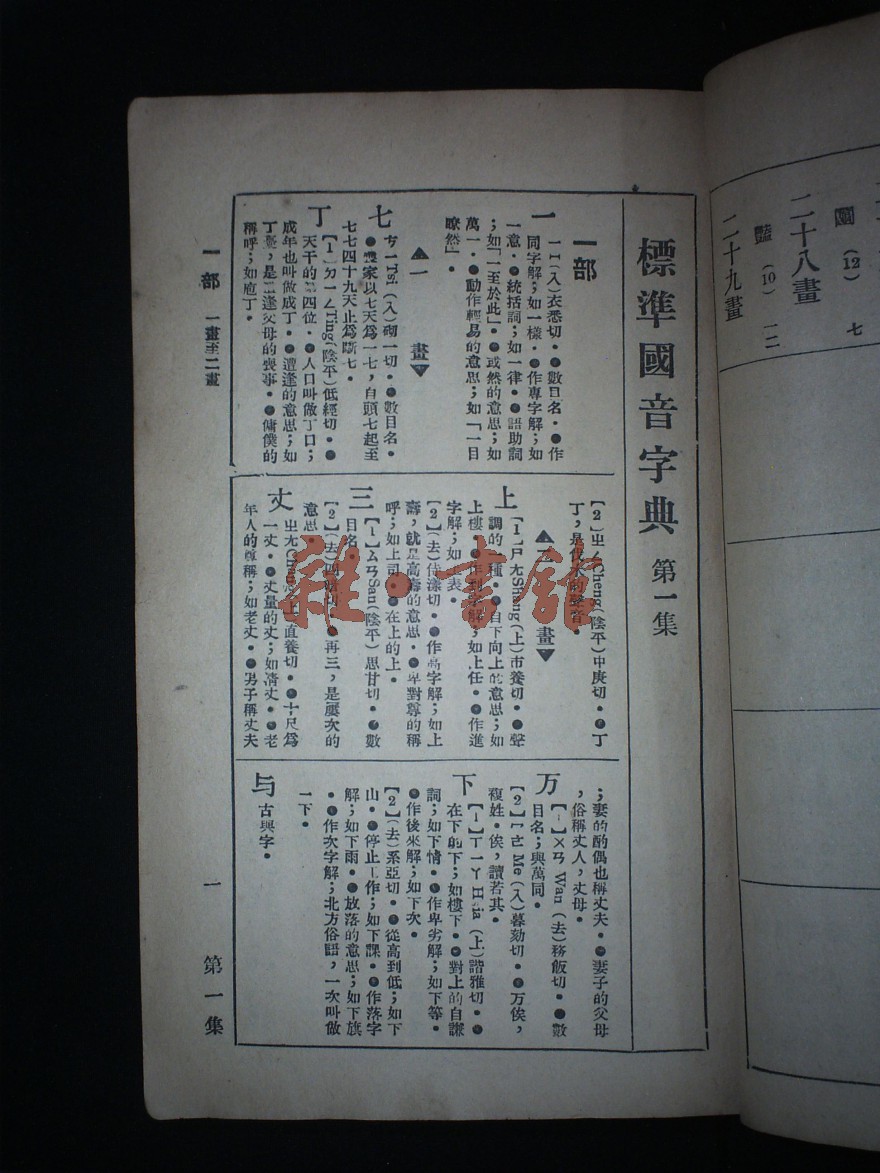 標準國音字典 第一集
一部
一 一I(入)衣悉切・●數目名・●作
同字解;如一樣・●作專字解;如
一意・●統括詞;如一律・●語助詞
;如「一至於此」・●或然的意思;如
萬一・●動作輕易的意思;如「一目
瞭然」・
▲一 畫▼
七 ㄘㄧTsi(入)砌一切・●數目名・
●喪家以七天爲一七,自頭七起至
七七四十九天止爲斷七・
丁 【1】ㄉㄧㄥTing(陰平)低經切・●
天干的第四位・●人口叫做丁口;
成年也叫做成丁・●遭逢的意思;如
丁憂,是遭逢父母的喪事・●傭僕的
稱呼;如庖丁・
【2】ㄓㄥCheng(陰平)中庚切・●丁
丁,是伐木的聲音・
▲二 畫▼
上 【1】ㄕㄤShang(上)市養切・●聲
調的一種・●自下向上的意思;如
上樓・●作到字解;如上任・●作進
字解;如上表・
【2】(去)侍漾切・●作高字解;如上
壽,就是高壽的意思・●卑對尊的稱
呼;如上司・●在上的上・
三 【1】ㄙㄢSan(陰平)思甘切・●數
目名・
【2】(去)四暫切・●再三,是屢次的
意思・
丈 ㄓㄤChang(上)直養切・●十尺爲
一丈・●丈量的丈;如淸丈・●老
年人的尊稱;如老丈・●男子稱丈夫
;妻的配偶也稱丈夫・●妻子的父母
,俗稱丈人,丈母・
万 【1】ㄨㄢWan(去)務飯切・●數
目名;與萬同・
【2】ㄇㄜMe(入)暮刻切・●万俟,
複姓・俟,讀若其・
下 【1】ㄒㄧㄚHsia(上)諧雅切・●
在下的下;如樓下・●對上的自謙
詞;如下情・●作卑劣解;如下等・
●作後來解;如下次・
【2】(去)系亞切・●從高到低;如下
山・●停止工作;如下課・●作落字
解;如下雨・●放落的意思;如下旗
・●作次字解;北方俗語,一次叫做
一下・
与 古與字・
一部 一畫至二畫
一
第一集
二十八畫
(12) 七
豔 (10) 一二
二十九畫
雜・書館